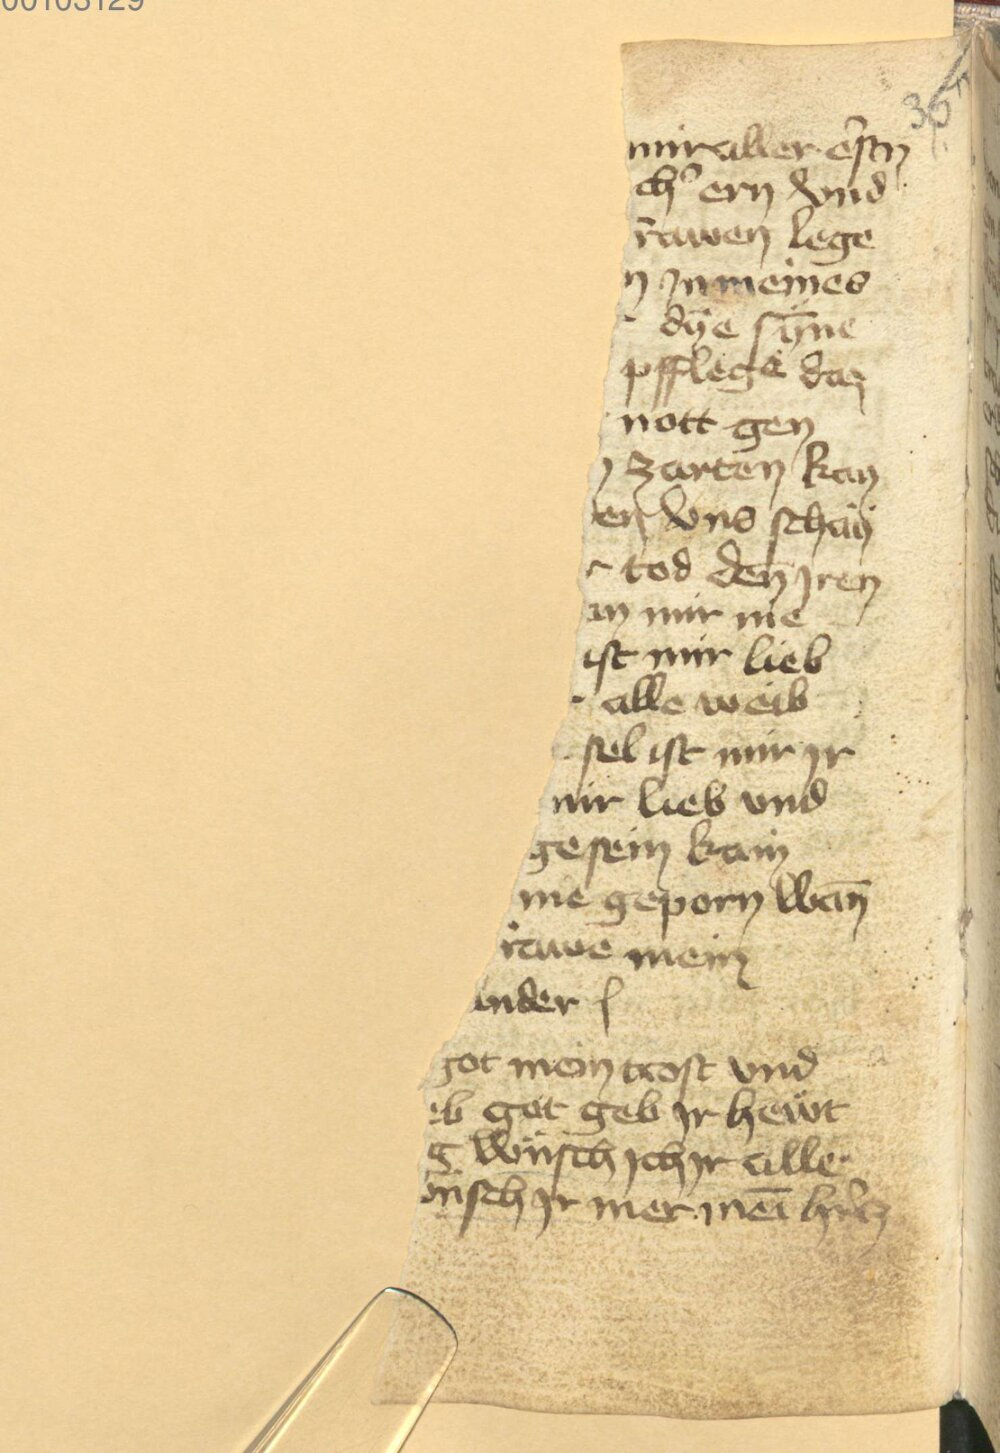 00103129
36
mir aller erstn
ch ern vnd
rawen lege
n In meines
dÿe sÿne
pfflege daz
nott gen
n zarten kan
en vns schaij
r tod den Iren
an mir nie
ist mir lieb
alle weib
sel ist mir Ir
mir lieb vnd
gesein kain
nie geporn Wan̄
rawe mein
ander
got mein trost vnd
eb got geb Ir hewt
g Wünsch Ich Ir alle
ünsch Ir mer mei̅ hrcz